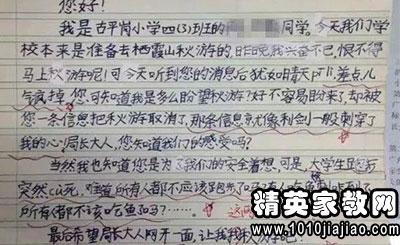 您好!
我是古平岗小学四(3)班的 同学,今天我们学
校本来是准备去栖霞山秋游的,昨晚我兴奋不已,恨不得
马上秋游呢!可今天听到您的消息后犹如晴天pīlì,差点儿
气疯掉。您可知道我是多么盼望秋游?好不容易盼来了,却被
您一条信息把秋游取消了,那条信息就像利剑一般刺穿了
我的心,局长大人,您知道我们的感受吗?
当然我也知道您是为了我们的安全着想,可是,大学生跑步
突然cù死,难道所有人都不应该跑步
所有人都不该吃鱼了吗?……。这
最后希望局长大人网开一面,让我
精英家教网
www.1010jiajiao.com